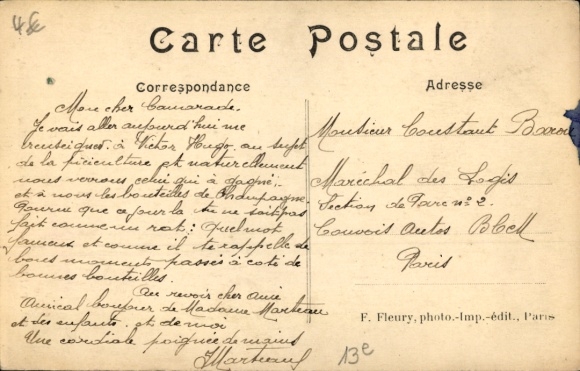 48c
Carte Postale
Correspondance
Adresse
Mon cher Camarade.
Je vais aller aujourd'hui me
renseigner à Victor Hugo au sujet
de la piciculture et naturellement
nous verrons celui qui à gagné,
et à nous les bouteilles de Champagne
Pourvu que ce jour la tu ne soit pas
fait comme un rat: Quel mot
fameux et comme il te rappelle de
bons moments passés à coté de
bonnes bouteilles.
Au revoir cher Ami
Amical bonjour de Madame Marteau
et des enfants, et de moi
Une cordiale poignée de mains
Marteau
Monsieur Constant
Maréchal des Logis
Section de Parc n° 2.
Convois Autos BCM
Paris
F. Fleury, photo.-Imp.-édit., Paris
13e